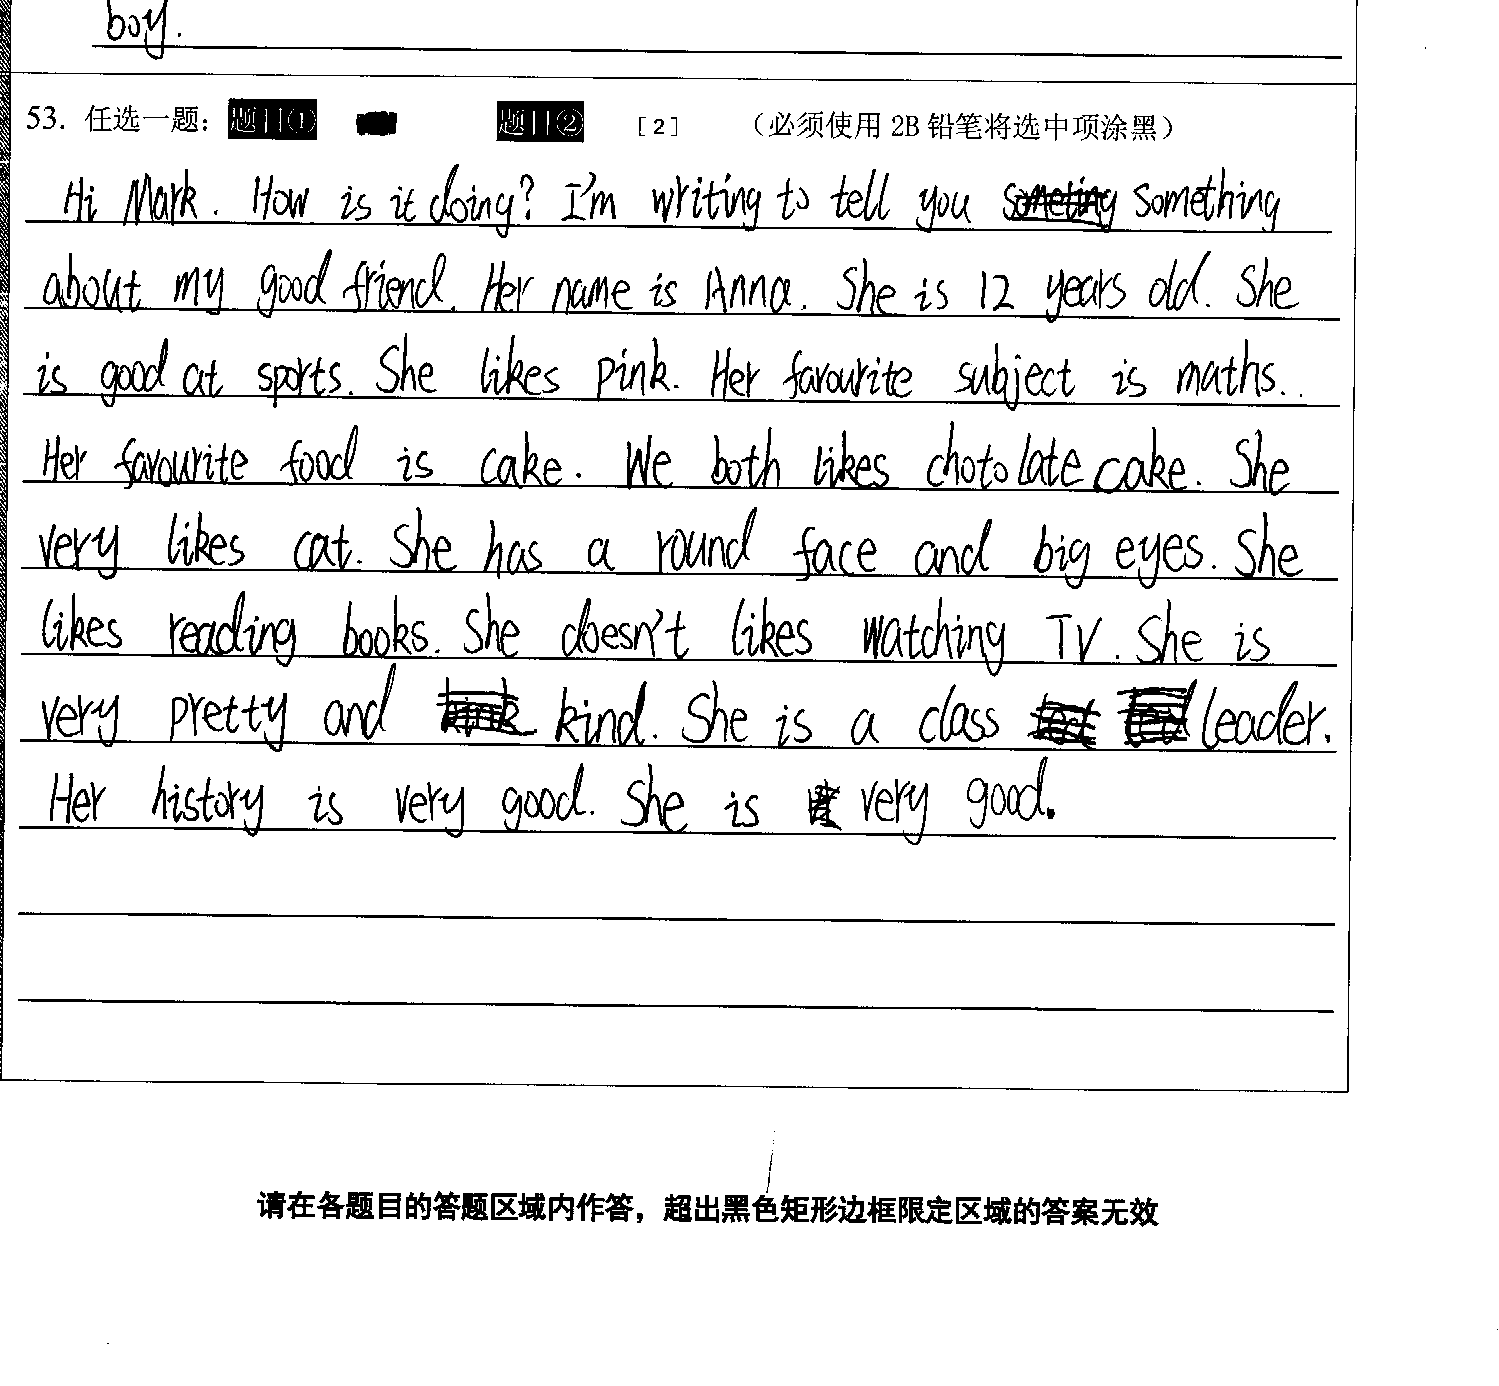 boy.
53. 任选一题： 题目① 题目② [2] （必须使用 2B 铅笔将选中项涂黑）
Hi Mark. How is it doing? I'm writing to tell you something
about my good friend. Her name is Anna. She is 12 years old. She
is good at sports. She likes pink. Her favourite subject is maths..
Her favourite food is cake. We both likes chotolate cake. She
very likes cat. She has a round face and big eyes. She
likes reading books. She doesn't likes watching TV. She is
very pretty and kind. She is a class leader.
Her history is very good. She is very good.
请在各题目的答题区域内作答，超出黑色矩形边框限定区域的答案无效